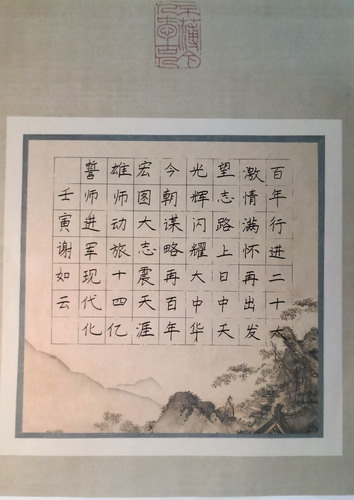 百年行进二十大
激情满怀再出发
望志路上日中天
光辉闪耀大中华
今朝谋略再百年
宏图大志震天涯
雄师动旅十四亿
誓师进军现代化
壬寅谢如云